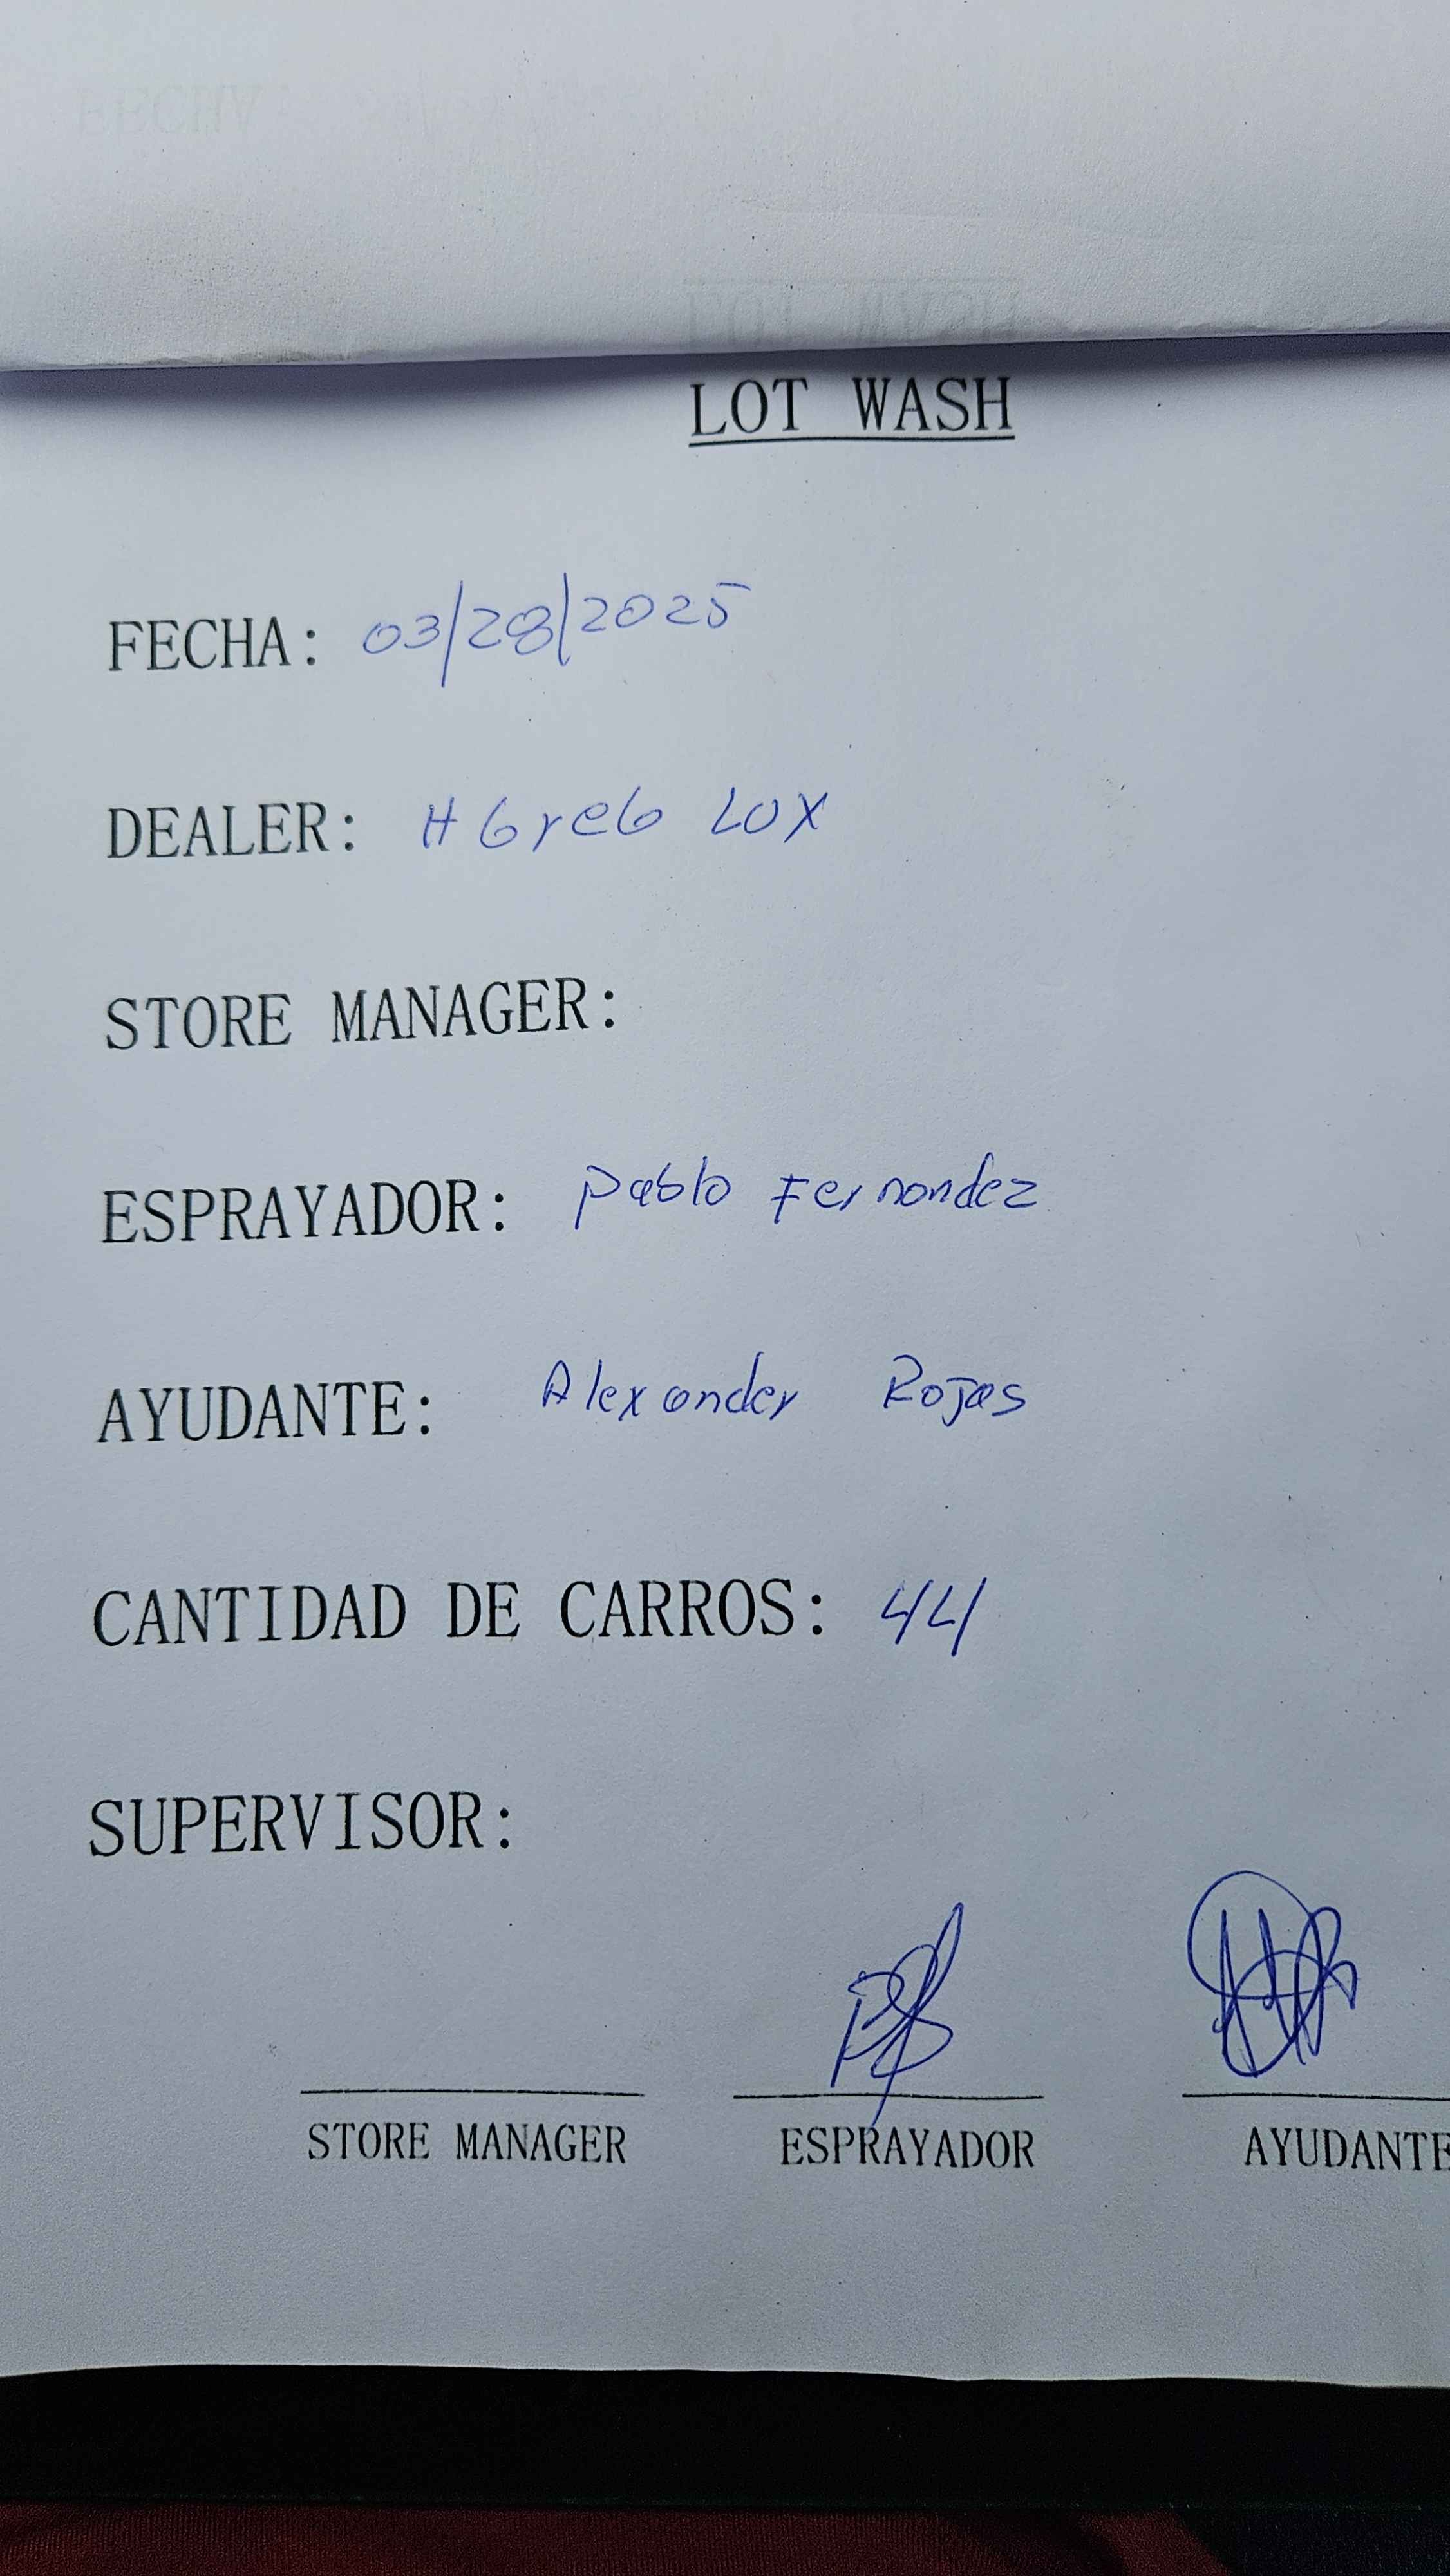 LOT WASH
FECHA: 03/28/2025
DEALER: HGreG LUX
STORE MANAGER:
ESPRAYADOR: Pablo Fernandez
AYUDANTE: Alexander Rojas
CANTIDAD DE CARROS: 44
SUPERVISOR:
STORE MANAGER ESPRAYADOR AYUDANTE